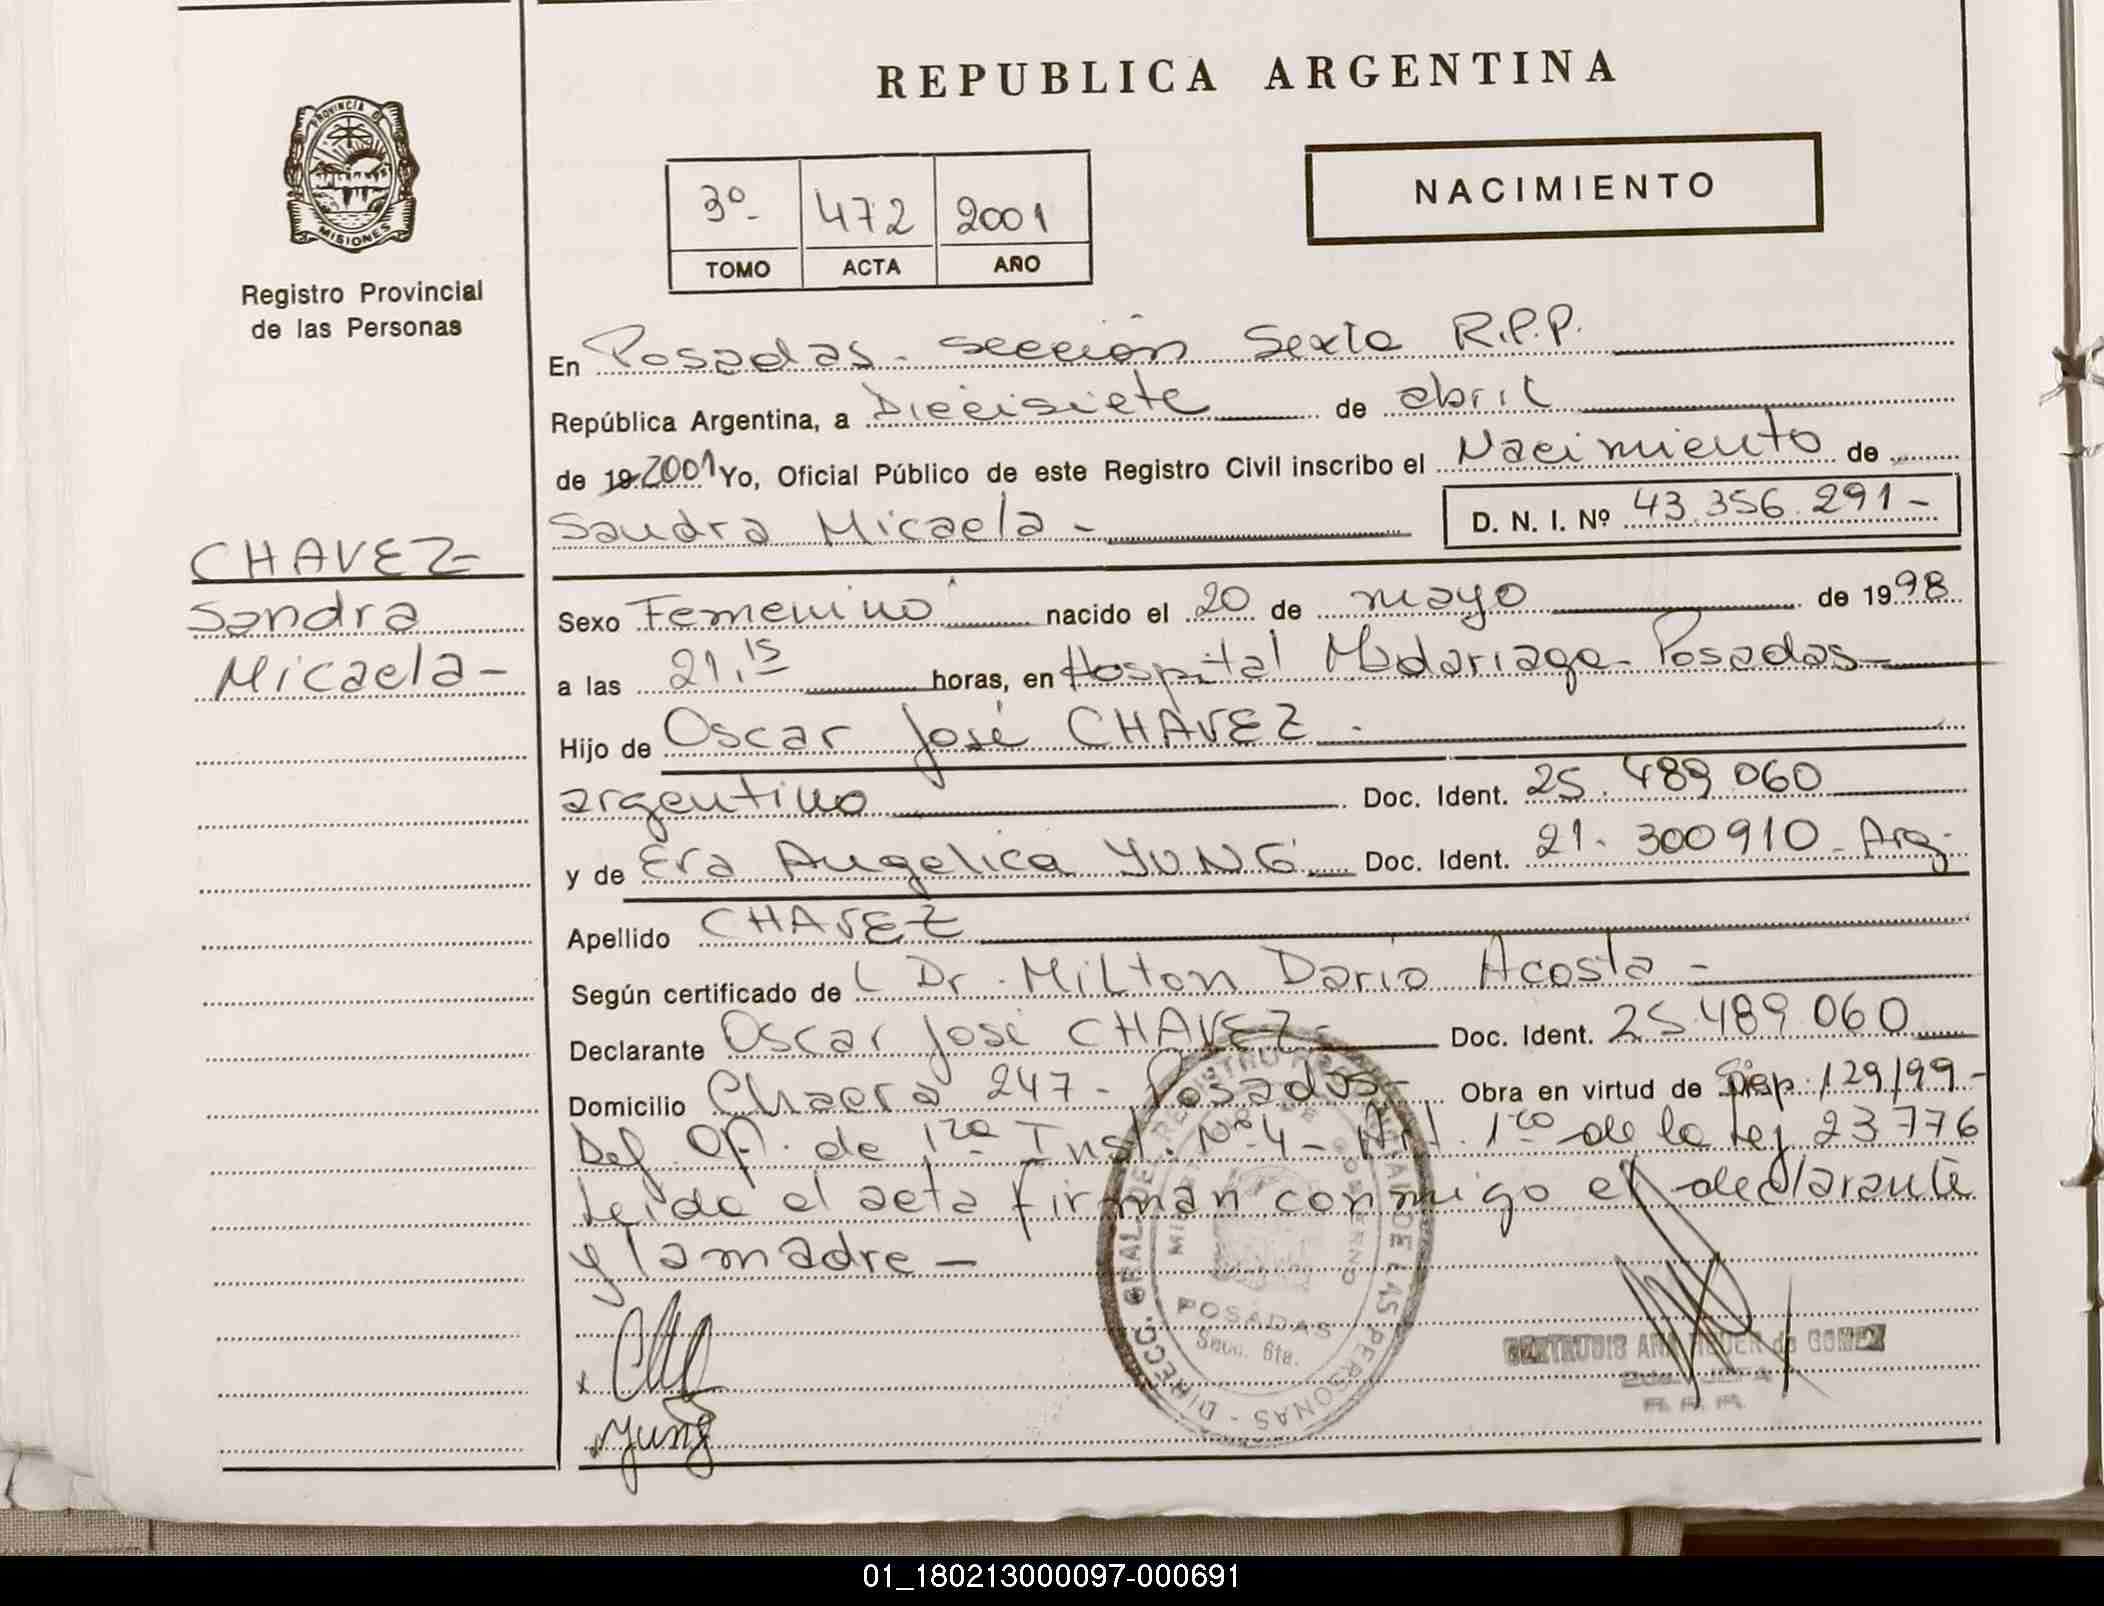 REPUBLICA ARGENTINA
PROVINCIA DE
MISIONES
Registro Provincial
de las Personas
3º- 472 2001
TOMO ACTA AÑO
NACIMIENTO
En Posadas - sección Sexta R.P.P.
República Argentina, a Diecisiete de abril
de 19 2001 Yo, Oficial Público de este Registro Civil inscribo el Nacimiento de
Sandra Micaela - D. N. I. Nº 43.356.291-
CHAVEZ
Sandra
Micaela-
Sexo Femenino nacido el 20 de mayo de 1998
a las 21,15 horas, en Hospital Madariaga - Posadas
Hijo de Oscar José CHAVEZ
argentino Doc. Ident. 25.489.060
y de Era Angelica YUNG Doc. Ident. 21.300910 - Arg.
Apellido CHAVEZ
Según certificado de Dr. Milton Dario Acosta -
Declarante Oscar José CHAVEZ - Doc. Ident. 25.489.060
Domicilio Chacra 247 - Posadas - Obra en virtud de Disp. 129/99 -
Def. Of. de 1ra Inst. Nº 4 - Art. 1ro de la Ley 23776
Leido el acta firman conmigo el declarante
y la madre -
DIRECC. GRAL. DE REGISTRO PROVINCIAL DE LAS PERSONAS -
POSADAS
Secc. 6ta.
GERTRUDIS ANA de GOMEZ
x
Yung
01_180213000097-000691